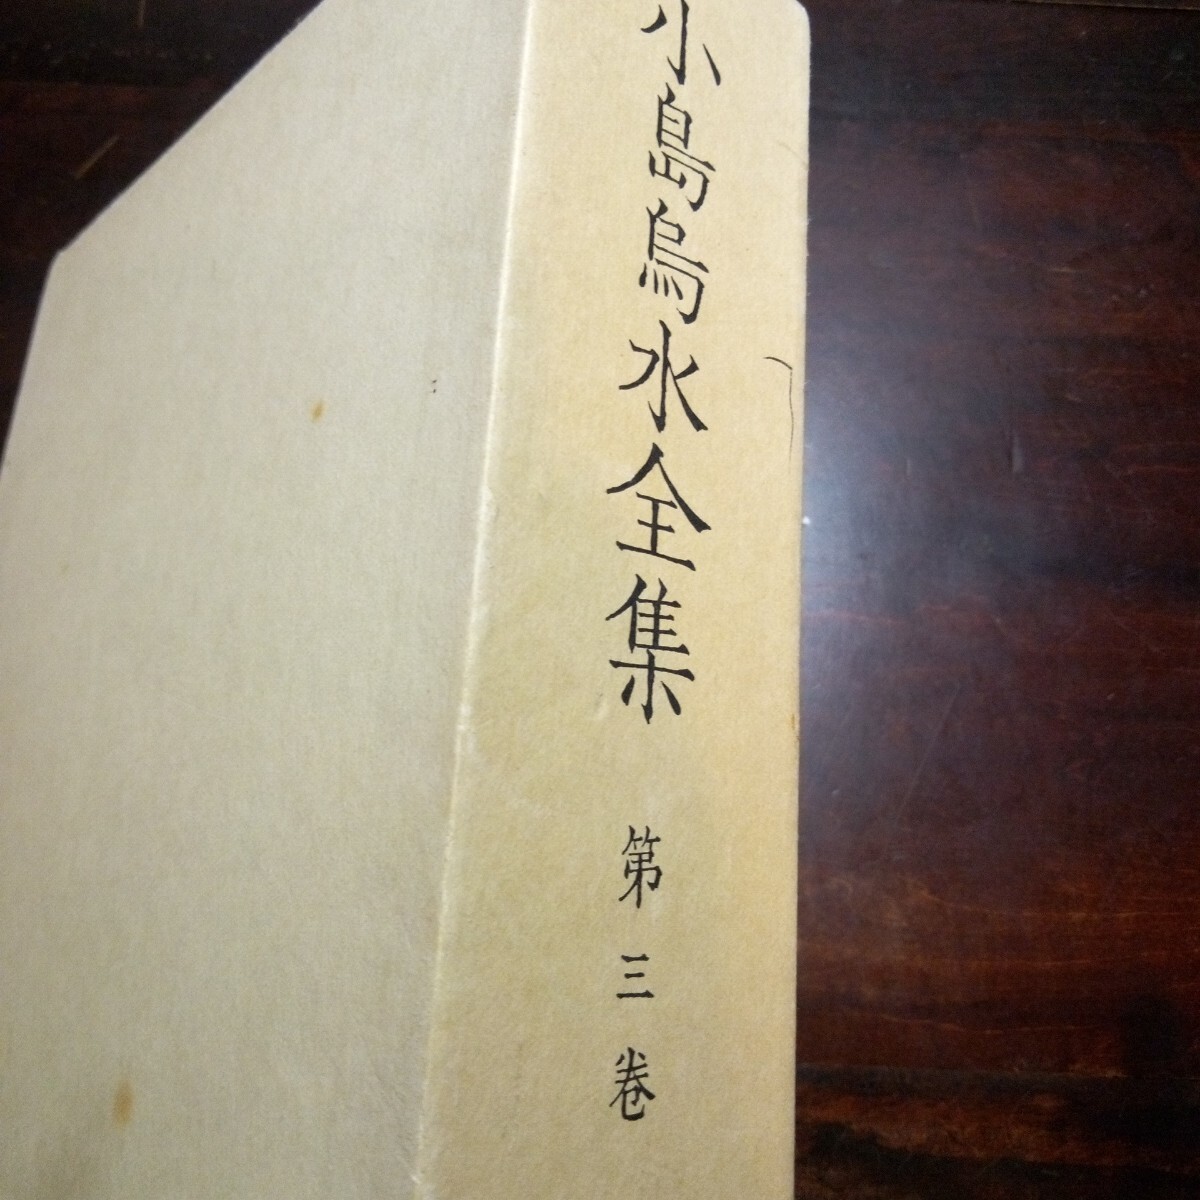 小島烏水全集
第三巻